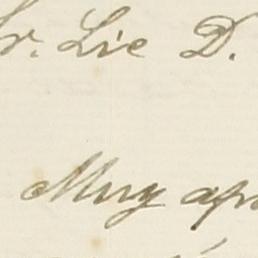 r. Lic D.
Muy apr